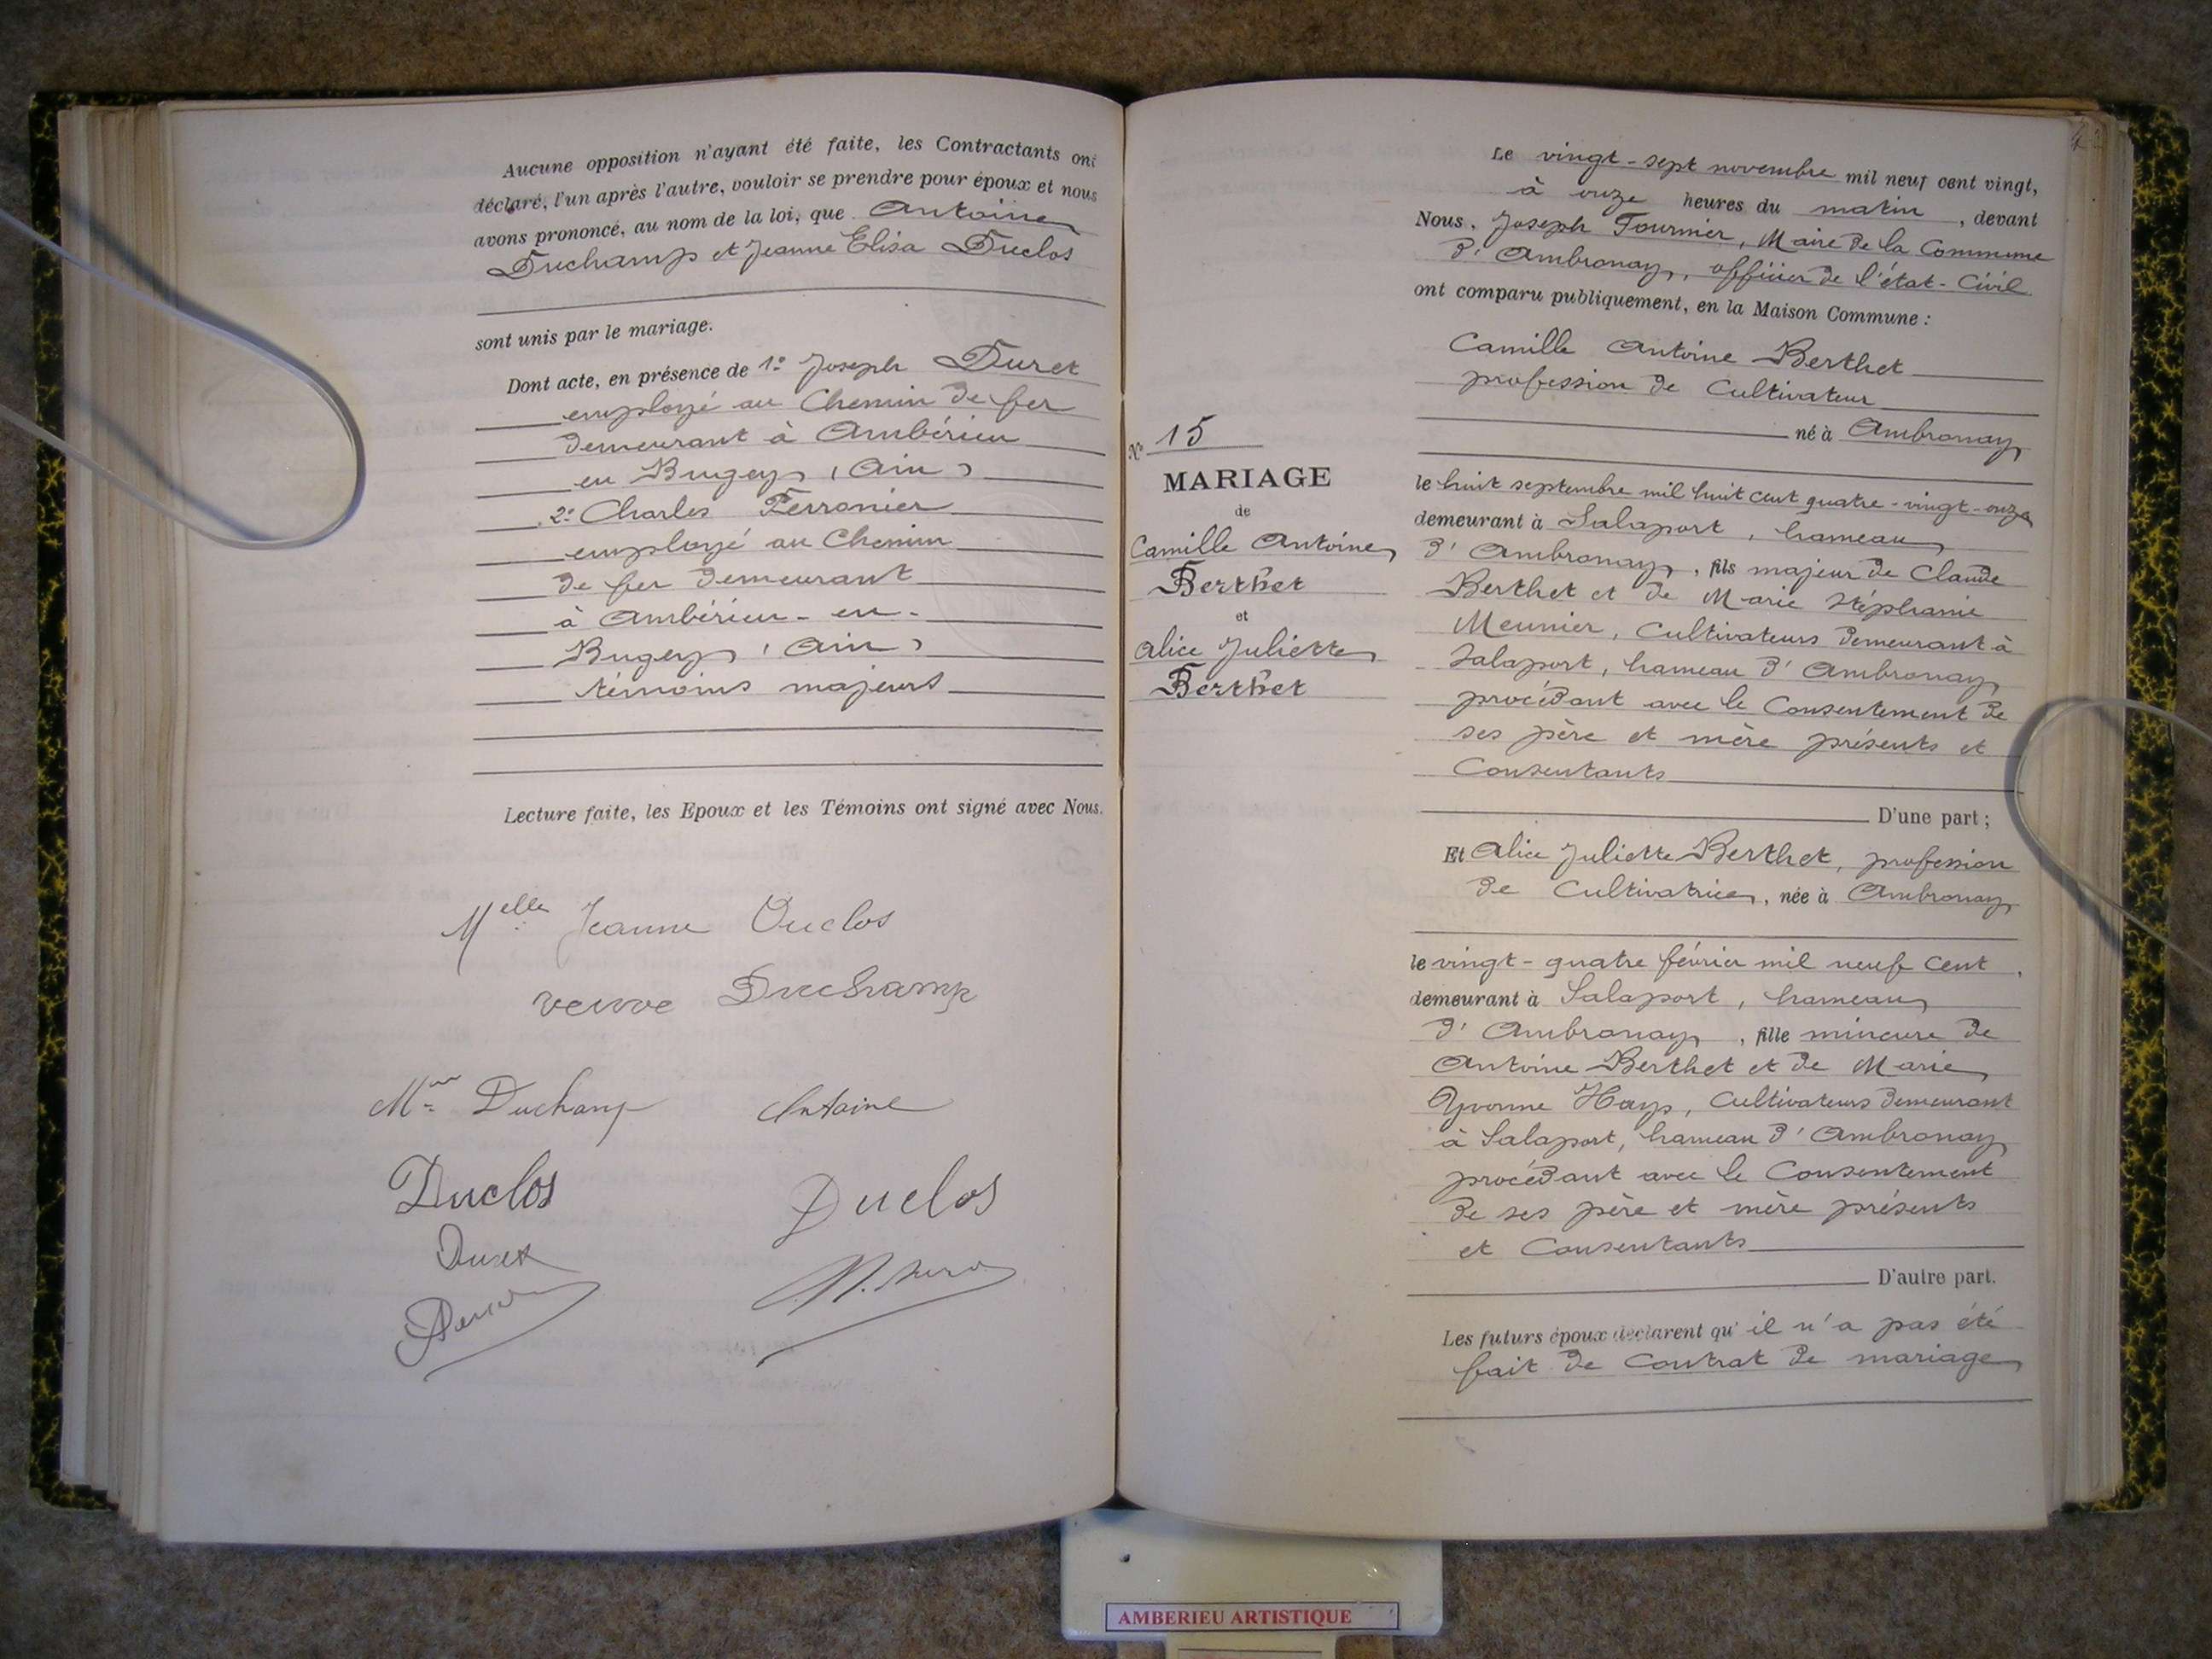 Aucune opposition n'ayant été faite, les Contractants ont
déclaré, l'un après l'autre, vouloir se prendre pour époux et nous
avons prononcé, au nom de la loi, que Antoine
Duchamp et Jeanne Elisa Duclos
sont unis par le mariage.
Dont acte, en présence de 1º Joseph Duret
employé au Chemin de fer
demeurant à Ambérieu
en Bugey (Ain)
2º Charles Ferronier
employé au Chemin
de fer demeurant
à Ambérieu-en-
Bugey (Ain)
témoins majeurs
Lecture faite, les Epoux et les Témoins ont signé avec Nous.
Melle Jeanne Duclos
veuve Duchamp
Mr Duchamp Antoine
Duclos Duclos
Duret
Le vingt-sept novembre mil neuf cent vingt,
à onze heures du matin, devant
Nous, Joseph Fournier, Maire de la Commune
d'Ambronay, officier de l'état-Civil
ont comparu publiquement, en la Maison Commune :
Camille Antoine Berthet
profession de Cultivateur
né à Ambronay
le huit septembre mil huit cent quatre-vingt-onze
demeurant à Salaport, hameau
d'Ambronay, fils majeur de Claude
Berthet et de Marie Stéphanie
Meunier, Cultivateurs demeurant à
Salaport, hameau d'Ambronay
procédant avec le Consentement de
ses père et mère présents et
Consentants
D'une part ;
Nº 15
MARIAGE
de
Camille Antoine
Berthet
et
Alice Juliette
Berthet
Et Alice Juliette Berthet, profession
de Cultivatrice, née à Ambronay
le vingt-quatre février mil neuf cent,
demeurant à Salaport, hameau
d'Ambronay, fille mineure de
Antoine Berthet et de Marie
Yvonne Hays, Cultivateurs demeurant
à Salaport, hameau d'Ambronay
procédant avec le Consentement
de ses père et mère présents
et Consentants
D'autre part.
Les futurs époux déclarent qu'il n'a pas été
fait de Contrat de mariage
AMBERIEU ARTISTIQUE